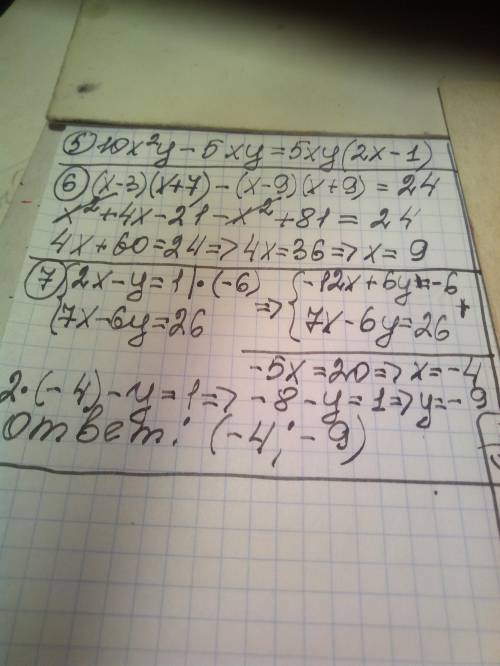 ⑤ 10x²y - 5xy = 5xy(2x - 1)
⑥ (x-3)(x+7) - (x-9)(x+9) = 24
x² + 4x - 21 - x² + 81 = 24
4x + 60 = 24 => 4x = 36 => x = 9
⑦ {2x - y = 1 | · (-6) => {-12x + 6y = -6
{7x - 6y = 26 {7x - 6y = 26 +
-5x = 20 => x = -4
2·(-4) - y = 1 => -8 - y = 1 => y = -9
Ответ: (-4; -9)